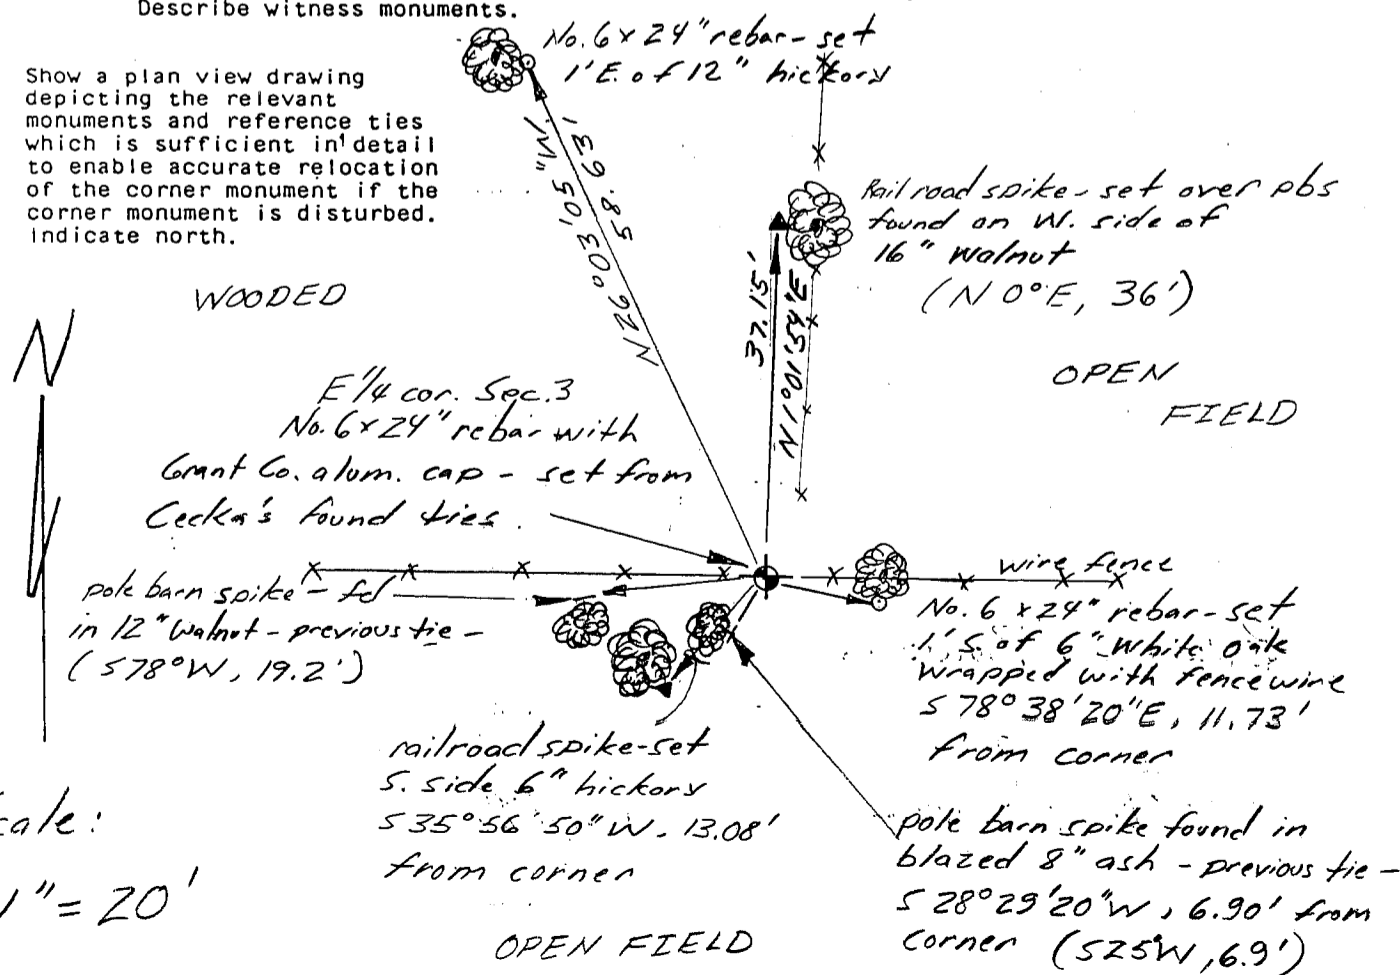 Describe witness monuments.
Show a plan view drawing
depicting the relevant
monuments and reference ties
which is sufficient in detail
to enable accurate relocation
of the corner monument if the
corner monument is disturbed.
Indicate north.
No. 6 x 24" rebar - set
1' E. of 12" hickory
N26°03'05"W.
58.63'
Railroad spike - set over pbs
found on W. side of
16" walnut
(N 0°E, 36')
37.15'
N1°01'54"E
WOODED
OPEN
FIELD
N
E 1/4 cor. Sec. 3
No. 6 x 24" rebar with
Grant Co. alum. cap - set from
Cecka's found ties.
wire fence
pole barn spike - fd
in 12" walnut - previous tie -
(S78°W, 19.2')
No. 6 x 24" rebar - set
1' S. of 6" White oak
wrapped with fence wire
S 78°38'20"E, 11.73'
from corner
railroad spike - set
S. side 6" hickory
S35°56'50"W - 13.08'
from corner
pole barn spike found in
blazed 8" ash - previous tie -
S 28°29'20"W, 6.90' from
corner (S25°W, 6.9')
cale:
1" = 20'
OPEN FIELD